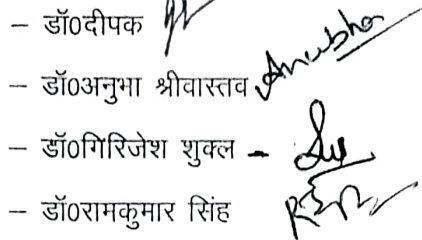 – डॉ0दीपक
– डॉ0अनुभा श्रीवास्तव Anubha
– डॉ0गिरिजेश शुक्ल –
– डॉ0रामकुमार सिंह